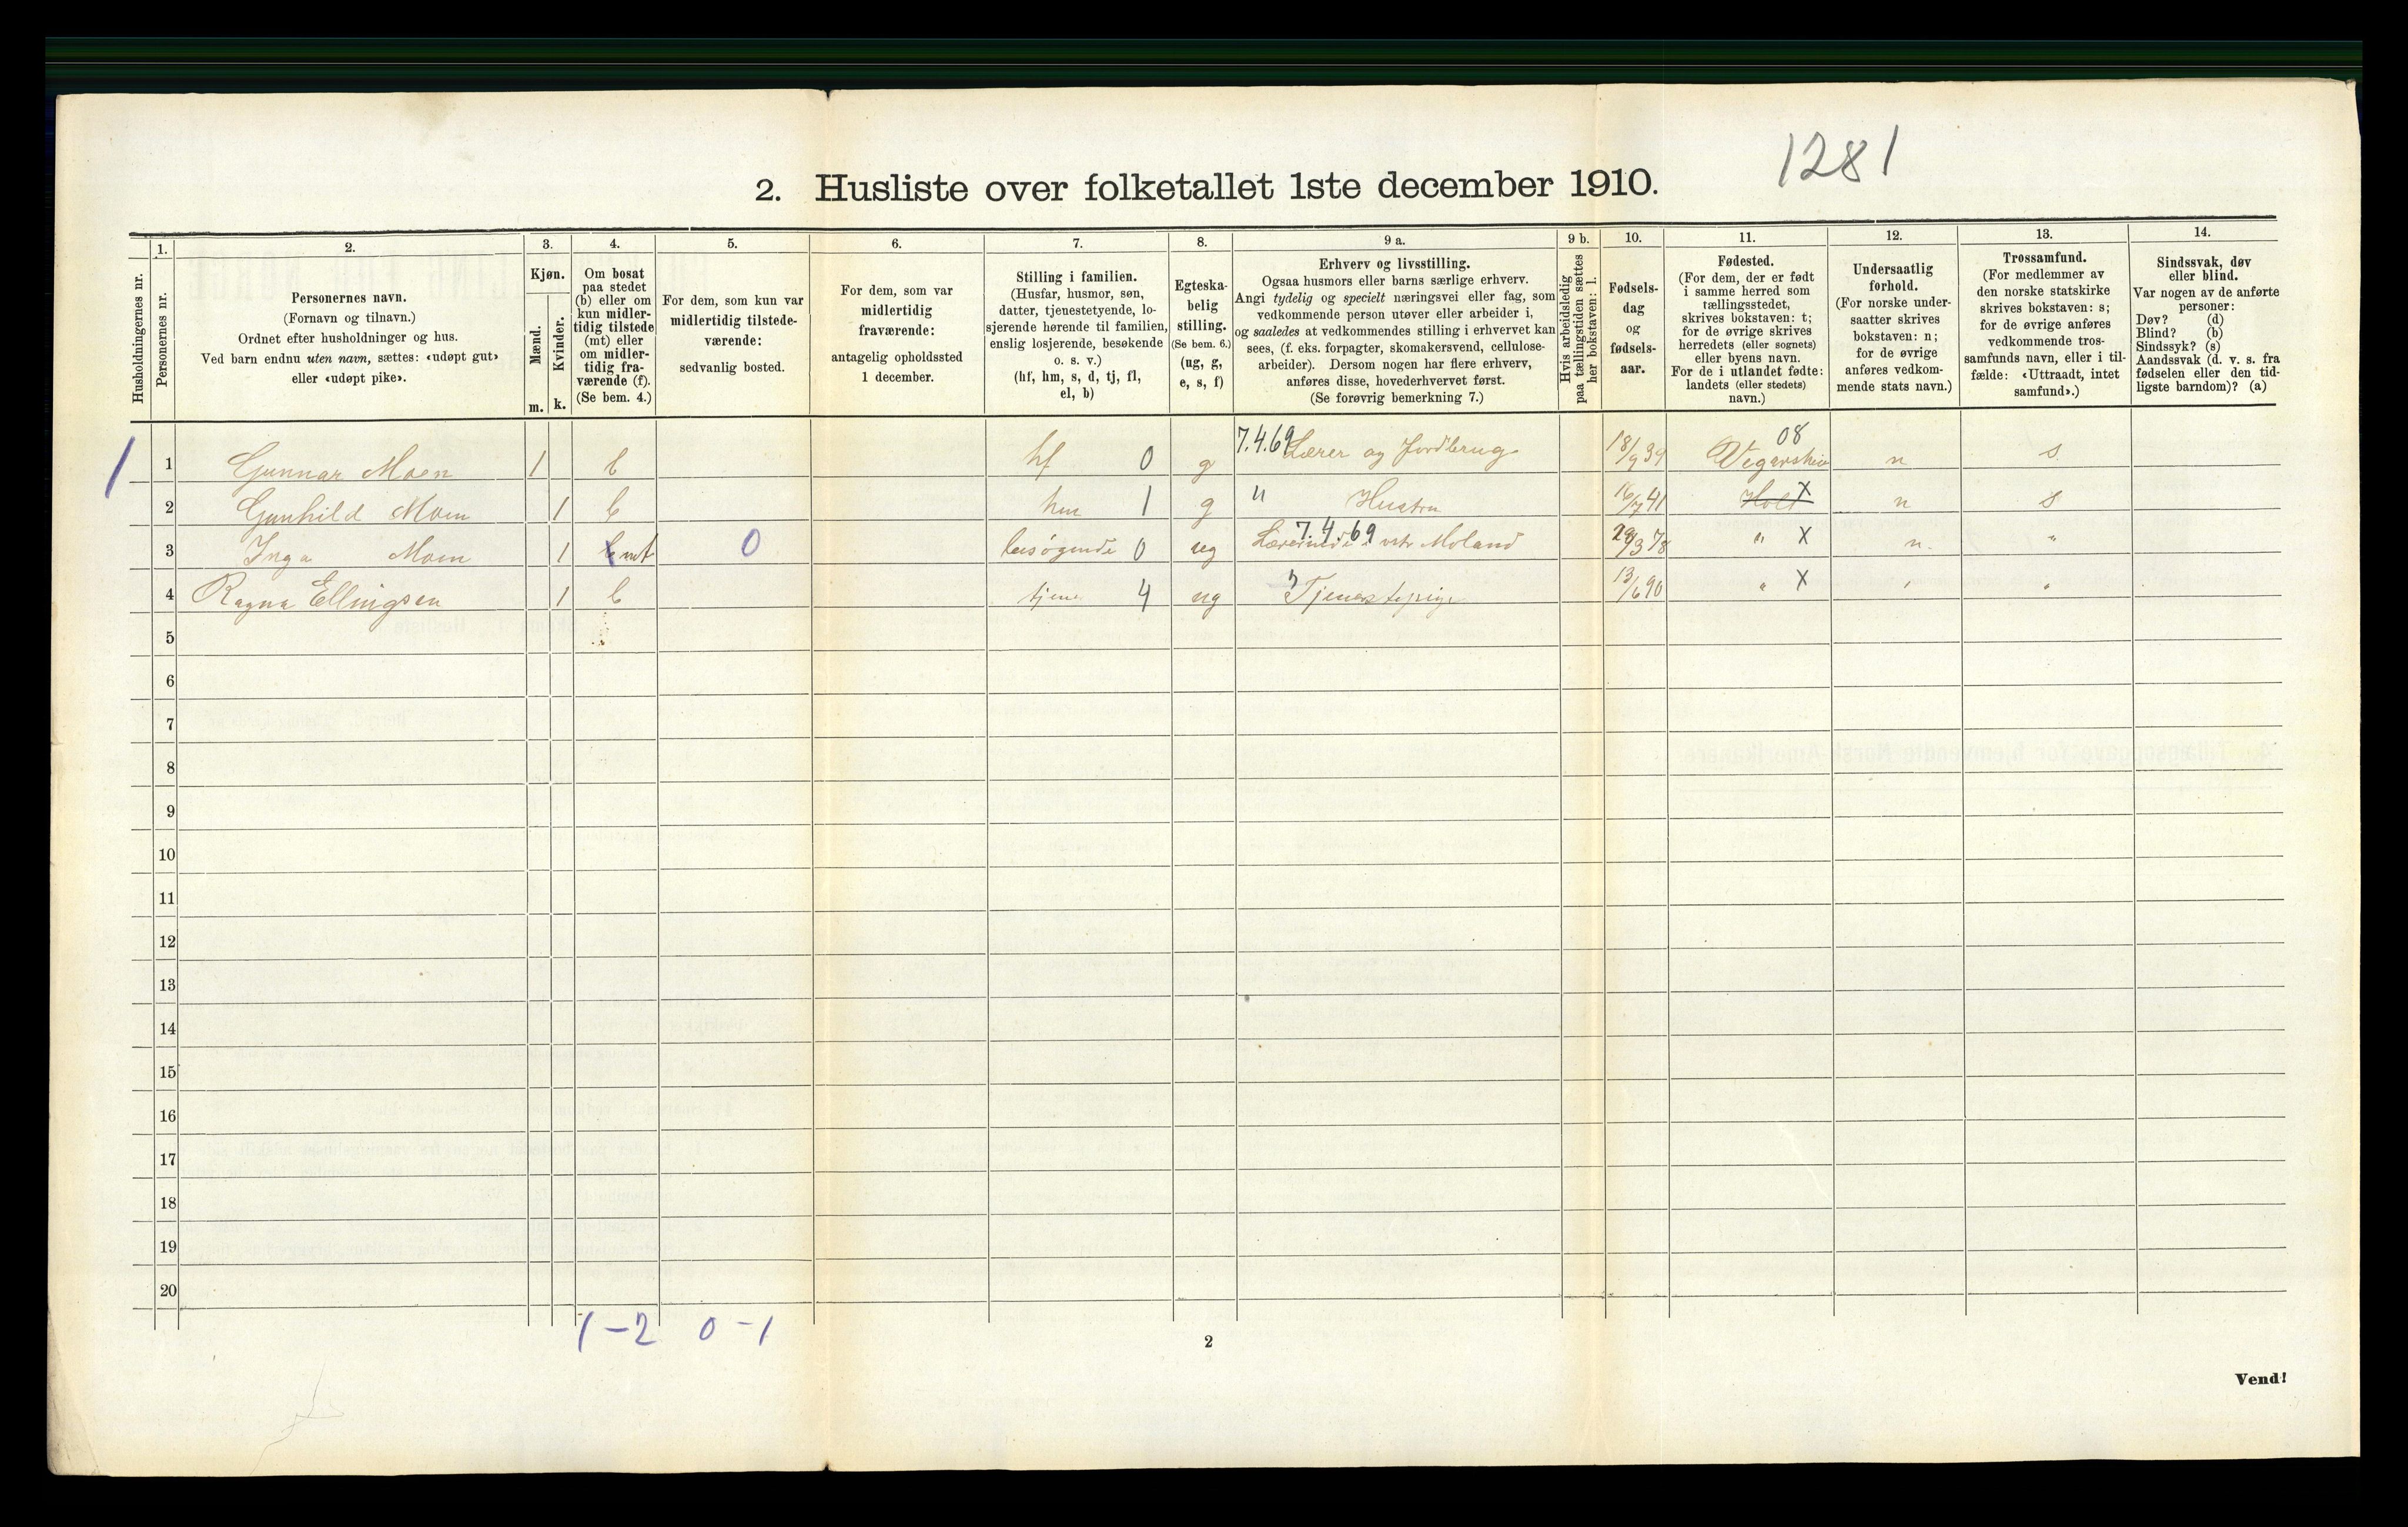 1281
2. Husliste over folketallet 1ste december 1910.
Husholdningernes nr.
1.
Personernes nr.
2.
Personernes navn.
(Fornavn og tilnavn.)
Ordnet efter husholdninger og hus.
Ved barn endnu uten navn, sættes: «udøpt gut»
eller «udøpt pike».
3.
Kjøn.
Mænd.
Kvinder.
m. k.
4.
Om bosat
paa stedet
(b) eller om
kun midler-
tidig tilstede
(mt) eller
om midler-
tidig fra-
værende (f).
(Se bem. 4.)
5.
For dem, som kun var
midlertidig tilstede-
værende:
sedvanlig bosted.
6.
For dem, som var
midlertidig
fraværende:
antagelig opholdssted
1 december.
7.
Stilling i familien.
(Husfar, husmor, søn,
datter, tjenestetyende, lo-
sjerende hørende til familien,
enslig losjerende, besøkende
o. s. v.)
(hf, hm, s, d, tj, fl,
el, b)
8.
Egteska-
belig
stilling.
(Se bem. 6.)
(ug, g,
e, s, f)
9 a.
Erhverv og livsstilling.
Ogsaa husmors eller barns særlige erhverv.
Angi tydelig og specielt næringsvei eller fag, som
vedkommende person utøver eller arbeider i,
og saaledes at vedkommendes stilling i erhvervet kan
sees, (f. eks. forpagter, skomakersvend, cellulose-
arbeider). Dersom nogen har flere erhverv,
anføres disse, hovederhvervet først.
(Se forøvrig bemerkning 7.)
9 b.
Hvis arbeidsledig
paa tællingstiden sættes
her bokstaven: l.
10.
Fødsels-
dag
og
fødsels-
aar.
11.
Fødested.
(For dem, der er født
i samme herred som
tællingsstedet,
skrives bokstaven: t;
for de øvrige skrives
herredets (eller sognets)
eller byens navn.
For de i utlandet fødte:
landets (eller stedets)
navn.)
12.
Undersaatlig
forhold.
(For norske under-
saatter skrives
bokstaven: n;
for de øvrige
anføres vedkom-
mende stats navn.)
13.
Trossamfund.
(For medlemmer av
den norske statskirke
skrives bokstaven: s;
for de øvrige anføres
vedkommende tros-
samfunds navn, eller i til-
fælde: «Uttraadt, intet
samfund».)
14.
Sindssvak, døv
eller blind.
Var nogen av de anførte
personer:
Døv? (d)
Blind? (b)
Sindssyk? (s)
Aandssvak (d. v. s. fra
fødselen eller den tid-
ligste barndom)? (a)
1 1 Gunnar Moen 1 b hf 0 g 7.4.69 Lærer og Jordbrug 18/9 39 08 n s
2 Gunhild Moen 1 b hm 1 g " Hustru 16/7 41 Holt X n s
3 Inga Moen 1 b mt 0 besøgende 0 ug 7.4.69 Moland 29/3 78 " X n. "
4 Ragna Ellingsen 1 b tjene 4 ug Tjenestepige 13/6 90 " X " "
5
6
7
8
9
10
11
12
13
14
15
16
17
18
19
20
1-2 0-1
2
Vend!